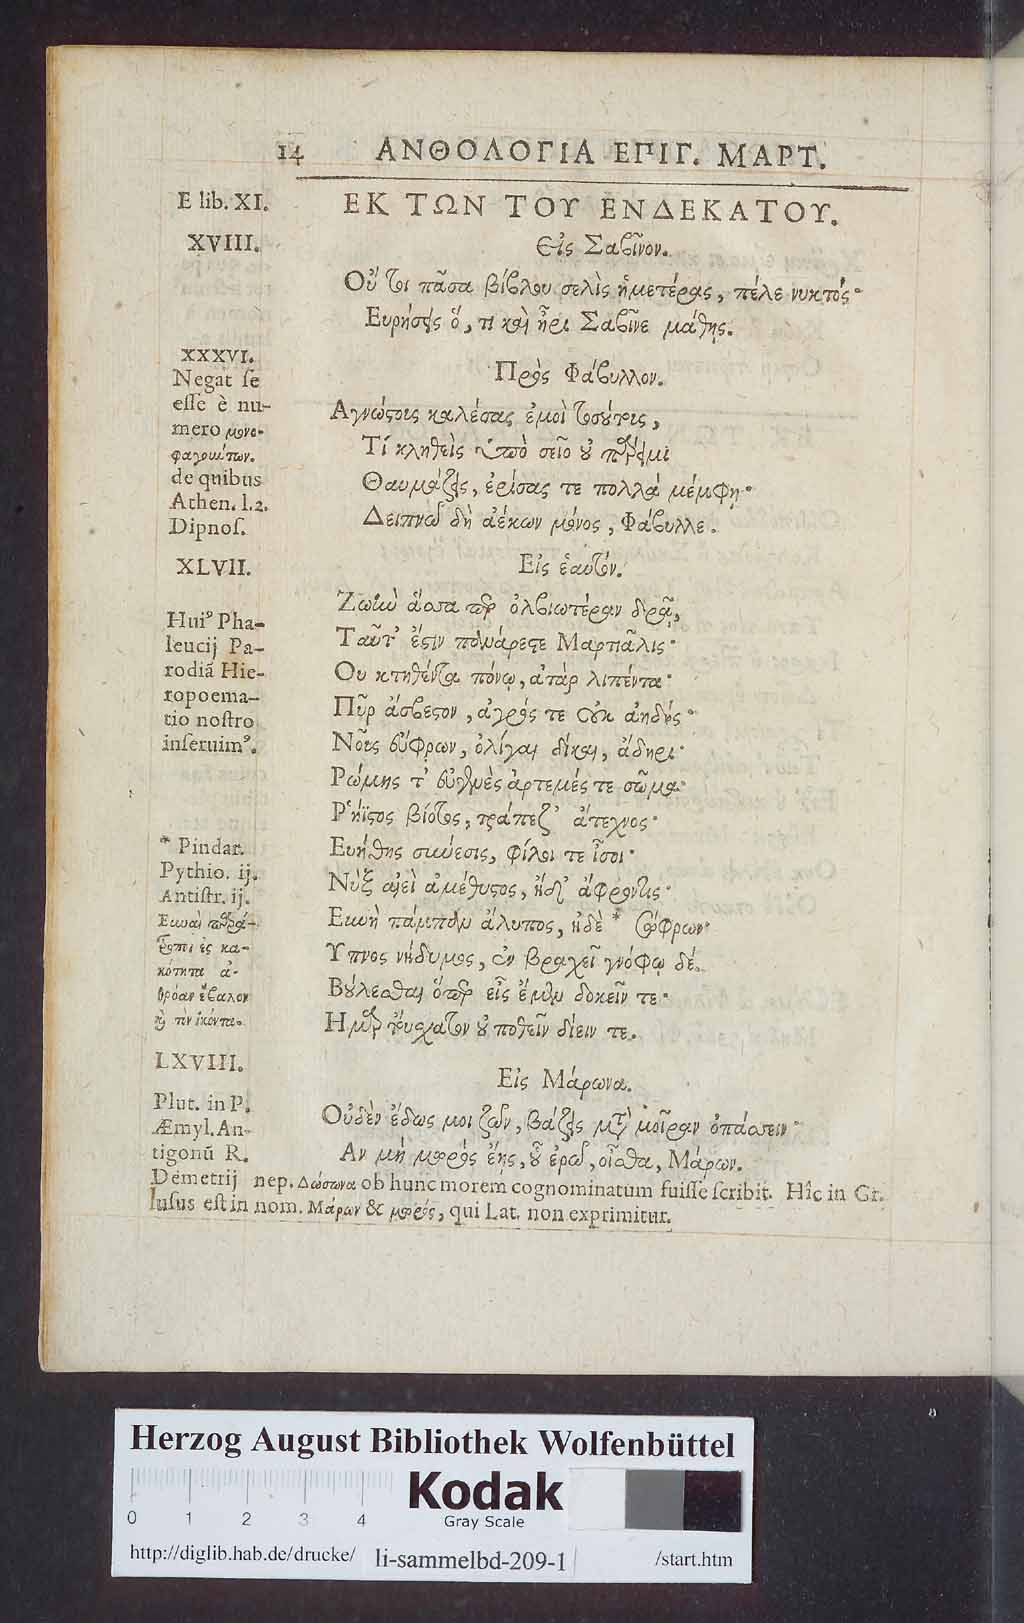 14 ΑΝΘΟΛΟΓΙΑ ΕΠΙΓ. ΜΑΡΤ.
E lib. XI.
ΕΚ ΤΩΝ ΤΟΥ ΕΝΔΕΚΑΤΟΥ.
XVIII.
Εἰς Σαβῖνον.
Οὔ τοι πᾶσα βίβλου σελὶς ἡμετέρας, πέλε νυκτός·
Ευρήσῃς ὅ, τι καὶ ἦρι Σαβῖνε μάθῃς.
XXXVI.
Negat se
esse è nu-
mero μονο-
φαγούντων.
de quibus
Athen. l. 2.
Dipnos.
Πρὸς Φάβυλλον.
Αγνώστους καλέσας ἐμοὶ τοσούτους,
Τί κληθεὶς ὑπὸ σεῖο οὐ πάρειμι
Θαυμάζεις, ἐρίσας τε πολλὰ μέμφῃ·
Δειπνῶ δὴ ἀέκων μόνος, Φάβυλλε.
XLVII.
Εἰς ἑαυτόν.
Huiꝰ Pha-
leucij Pa-
rodiã Hie-
ropoema-
tio nostro
inseruimꝰ.
Ζωὴν ἅσσα περ ὀλβιωτέραν δρᾷ,
Ταῦτ' ἔστιν πολυάρεστε Μαρτιᾶλις·
Ου κτηθέντα πόνῳ, ἀτὰρ λιπέντα·
Πῦρ ἄσβεστον, ἀγρός τε οὐκ ἀηδής·
Νοῦς εὔφρων, ὀλίγαι δίκαι, ἄδηρι·
Ρώμης τ' εὐγενὲς ἀρτεμές τε σῶμα·
Ρήϊστος βίοτος, τράπεζ' ἄτεχνος·
Ευήθης σύνεσις, φίλοι τε ἶσοι·
Νὺξ αἰεὶ ἀμέθυστος, ἠδ' ἄφροντις·
Ευνὴ πάμπολυ ἄλυπος, ἠδὲ * σώφρων·
Υπνος νήδυμος, ἐν βραχεῖ γνόφῳ δέ.
Βούλεσθαι ὅπερ εἶς ἔμεν δοκεῖν τε·
Η μὴν ἔσχατον οὐ ποθεῖν δίειν τε.
* Pindar.
Pythio. ij.
Antistr. ij.
Ευναὶ παρά-
τροποι ἐς κα-
κότητα ἀ-
θρόαν ἔβαλον
καὶ τὸν ἱκόντα.
LXVIII.
Εἰς Μάρωνα.
Plut. in P.
Æmyl. An-
tigonũ R.
Οὐδὲν ἔδως μοι ζῶν, βάζεις μετὰ μοῖραν ὀπάσσειν·
Αν μὴ μωρὸς ἔῃς, ὃ ἐρῶ, οἶσθα, Μάρων.
Demetrij nep. Δώσωνα ob hunc morem cognominatum fuisse scribit. Hîc in Gr.
lusus est in nom. Μάρων & μωρός, qui Lat. non exprimitur.
Herzog August Bibliothek Wolfenbüttel
0 1 2 3 4
Kodak
Gray Scale
http://diglib.hab.de/drucke/ li-sammelbd-209-1 /start.htm